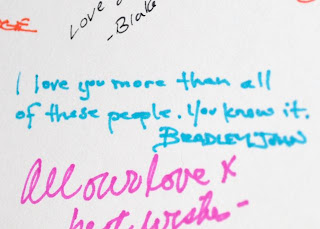 Love
-Blake
I love you more than all
of these people. You know it.
BRADLEY JOHN
All our Love x
best wishes -